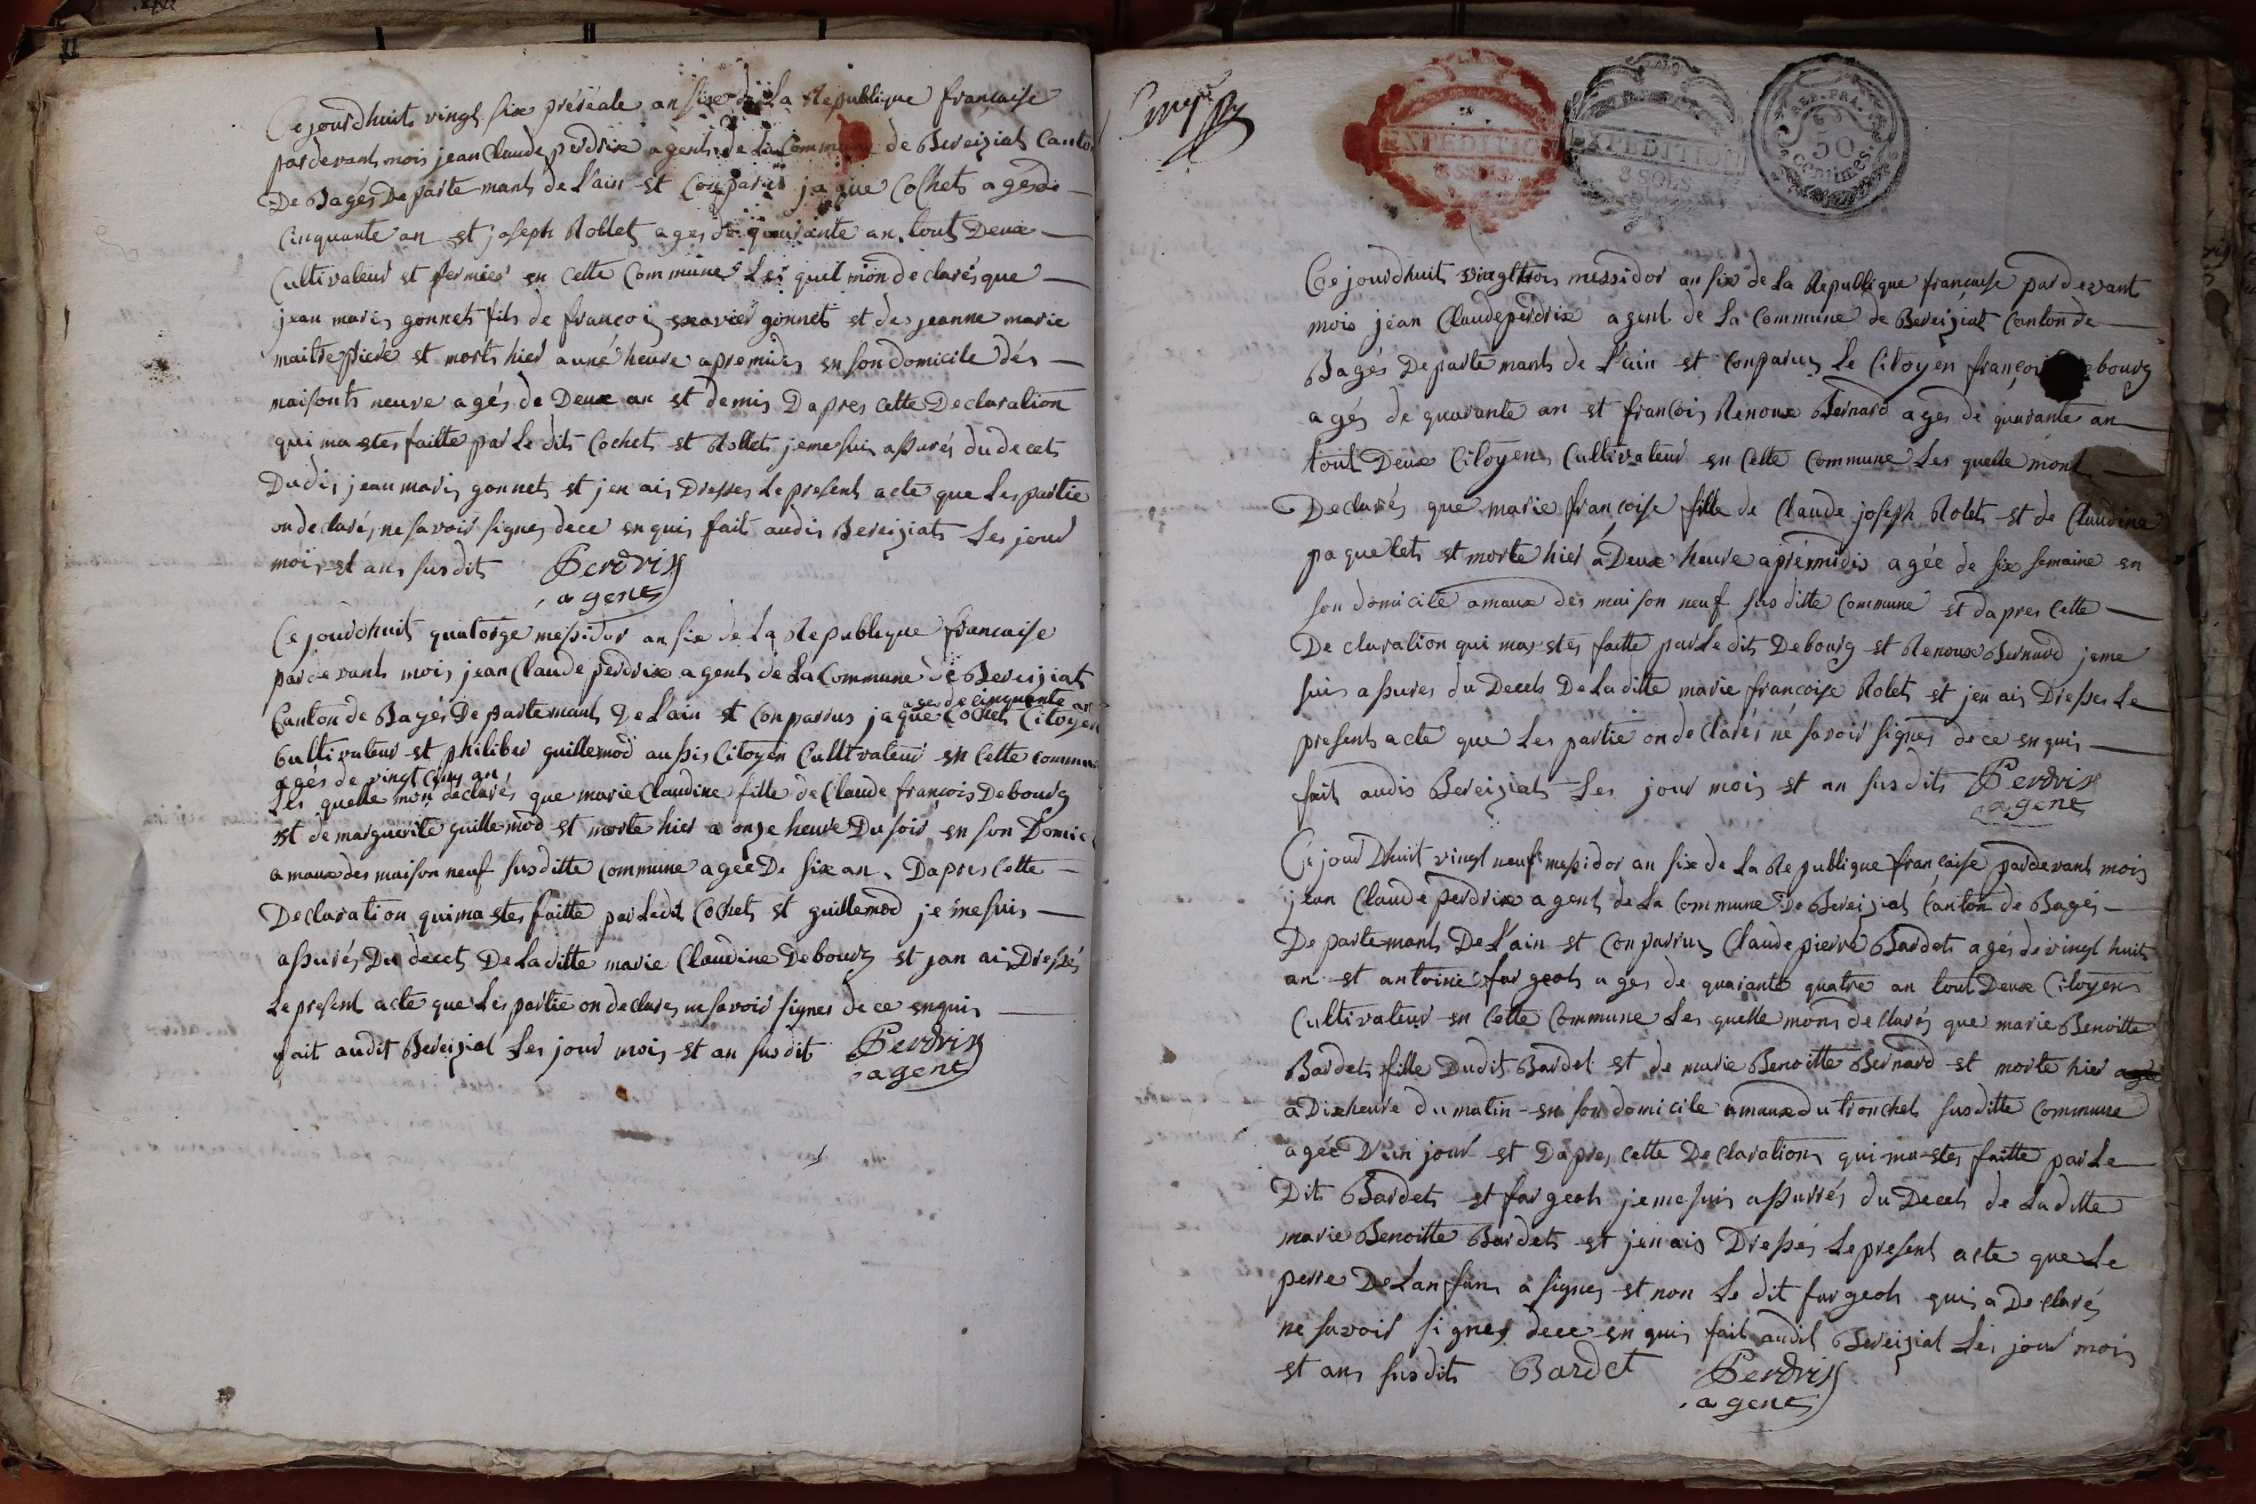 Ce jourdhuit vingt six préréale an six de La Republique francaise
pardevant mois jean Claude perdrix agents de La Commune de Bereiziat Canton
De Bagés Departemants de L'ain est Conparus jaque Cochet ages de
Cinquante an est joseph Rollet ages de quarante an tout Deux
Cultivateur et fermier en Cette Commune Les quil mon declarés que
jean maris gonnet fils de francois xavier gonnet et des jeanne marie
maitrepierre est morts hier a une heure apremidis en son domicile dés
maisonts neuve agés de Deux an et demis Dapres Cette Declaration
qui ma etes faitte par Le dit Cochet et Rollet je me suis assurés du decet
Dudis jean maris gonnet et jen ais Dresses Le present acte que Les partie
on declarés ne savoir signes de ce enquis fait audis Bereiziat Les jour
mois et ans susdit Perdrix
agent
Ce jourdhuit quatorze messidor an six de La Republique francaise
pardevant mois jean Claude perdrix agents de La Commune de Bereiziat
ages de cinquante an
Canton de Bagés Departemants De L'ain est Conparrus jaque Cochet Citoyen
Cultivateur et philiber guillemod aussis Citoyen Cultivateur en Cette commune
agés de vingt cinq an
Les quelle mon declarés que marie Claudine fille de Claude francois Debourg
et de marguerite guillemod est morte hier a onze heure Du soir en son Domicile
amaux des maison neuf susditte Commune agée De six an. Dapres Cette
Declaration qui ma etes faitte par Ledit Cochet et guillemod je me suis
assurés Du decet De Laditte marie Claudine Debourg et jan ais Dressés
Le present acte que Les partie on declares ne savoir signes de ce enquis
fait audit Bereiziat Les jour mois et an susdit Perdrix
agent
EXPEDITION
8 SOLS
EXPEDITION
8 SOLS
REP. FRA.
50
Centimes.
Ce jourdhuit vingttrois messidor an six de La Republique francaise pardevant
mois jean Claude perdrix agent de La Commune de Bereiziat Canton de
Bagés Departemants de L'ain est Conparus Le Citoyen françois Debourg
agés de quarante an et francois Renoux Bernard ages de quarante an
tout Deux Citoyens Cultivateur en Cette Commune Les quelle mont
Declarés que marie françoise fille de Claude joseph Rolet et de Claudine
paquelet est morte hier a Deux heure aprémidis agée de six semaine en
son domicile amaux des maison neuf susditte Commune et dapres Cette
Declaration qui ma etes faitte par Le dit Debourg et Renoux Bernard je me
suis assures du Decets De Laditte marie françoise Rolet et jen ais Dresses Le
present acte que Les partie on declarés ne savoir signes de ce enquis
fait audis Bereiziat Les jour mois et an susdits Perdrix
agent
Ce jour Dhuit vingt neuf messidor an six de La Republique française pardevant mois
jean Claude perdrix agent de La Commune De Bereiziat Canton de Bagés
Departemants De L'ain est Conparrus Claude pierre Bardet agés de vingt huit
an et antoine fargeot ages de quarante quatre an tout Deux Citoyens
Cultivateur en Cette Commune Les quelle mons declarés que marie Benoitte
Bardet fille Dudit Bardet et de marie Benoitte Bernard est morte hier
a Dix heure du matin en son domicile amaux du tronchet susditte Commune
agée D'un jour et Dapres Cette Declaration qui ma etes faitte par Le
Dit Bardet et fargeot je me suis assurrés du Decets de Laditte
marie Benoitte Bardet et jen ais Dressés Le present acte que Le
perre De Lanfans a signes et non Le dit fargeot quis a Declarés
ne savoir signes de ce enquis fait audit Bereiziat Les jour mois
et ans susdits Bardet Perdrix
agent